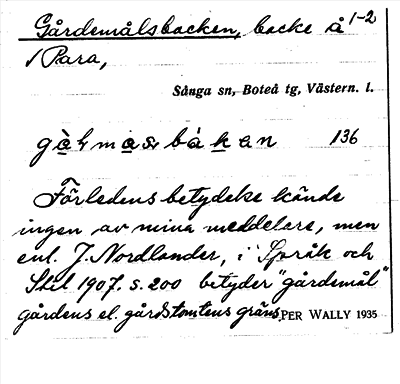 Gårdemålsbacken, backe å 1-2
i Para,
Sånga sn, Boteå tg, Västern. l.
136
Förledens betydelse kände
ingen av mina meddelare, men
enl. J. Nordlander, i Språk och
Stil 1907. s. 200 betyder "gårdemål"
gårdens el. gårdstomtens gräns.
PER WALLY 1935